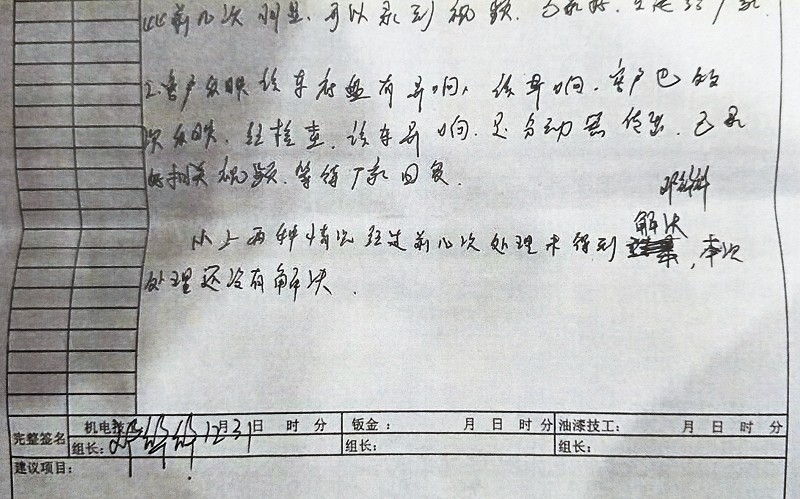 此前几次明显，可以录到视频，
2.客户反映该车存盘有异响，该异响，客户已多
次反映，经检查，该车异响，是启动器传出，已录
好相关视频，等待厂家回复。
以上两种情况经过前几次处理未得到解决，本次
处理还没有解决。
完整签名 机电技工 12月31日 时 分 钣金： 月 日 时 分 油漆技工： 月 日 时 分
组长： 组长： 组长：
建议项目：